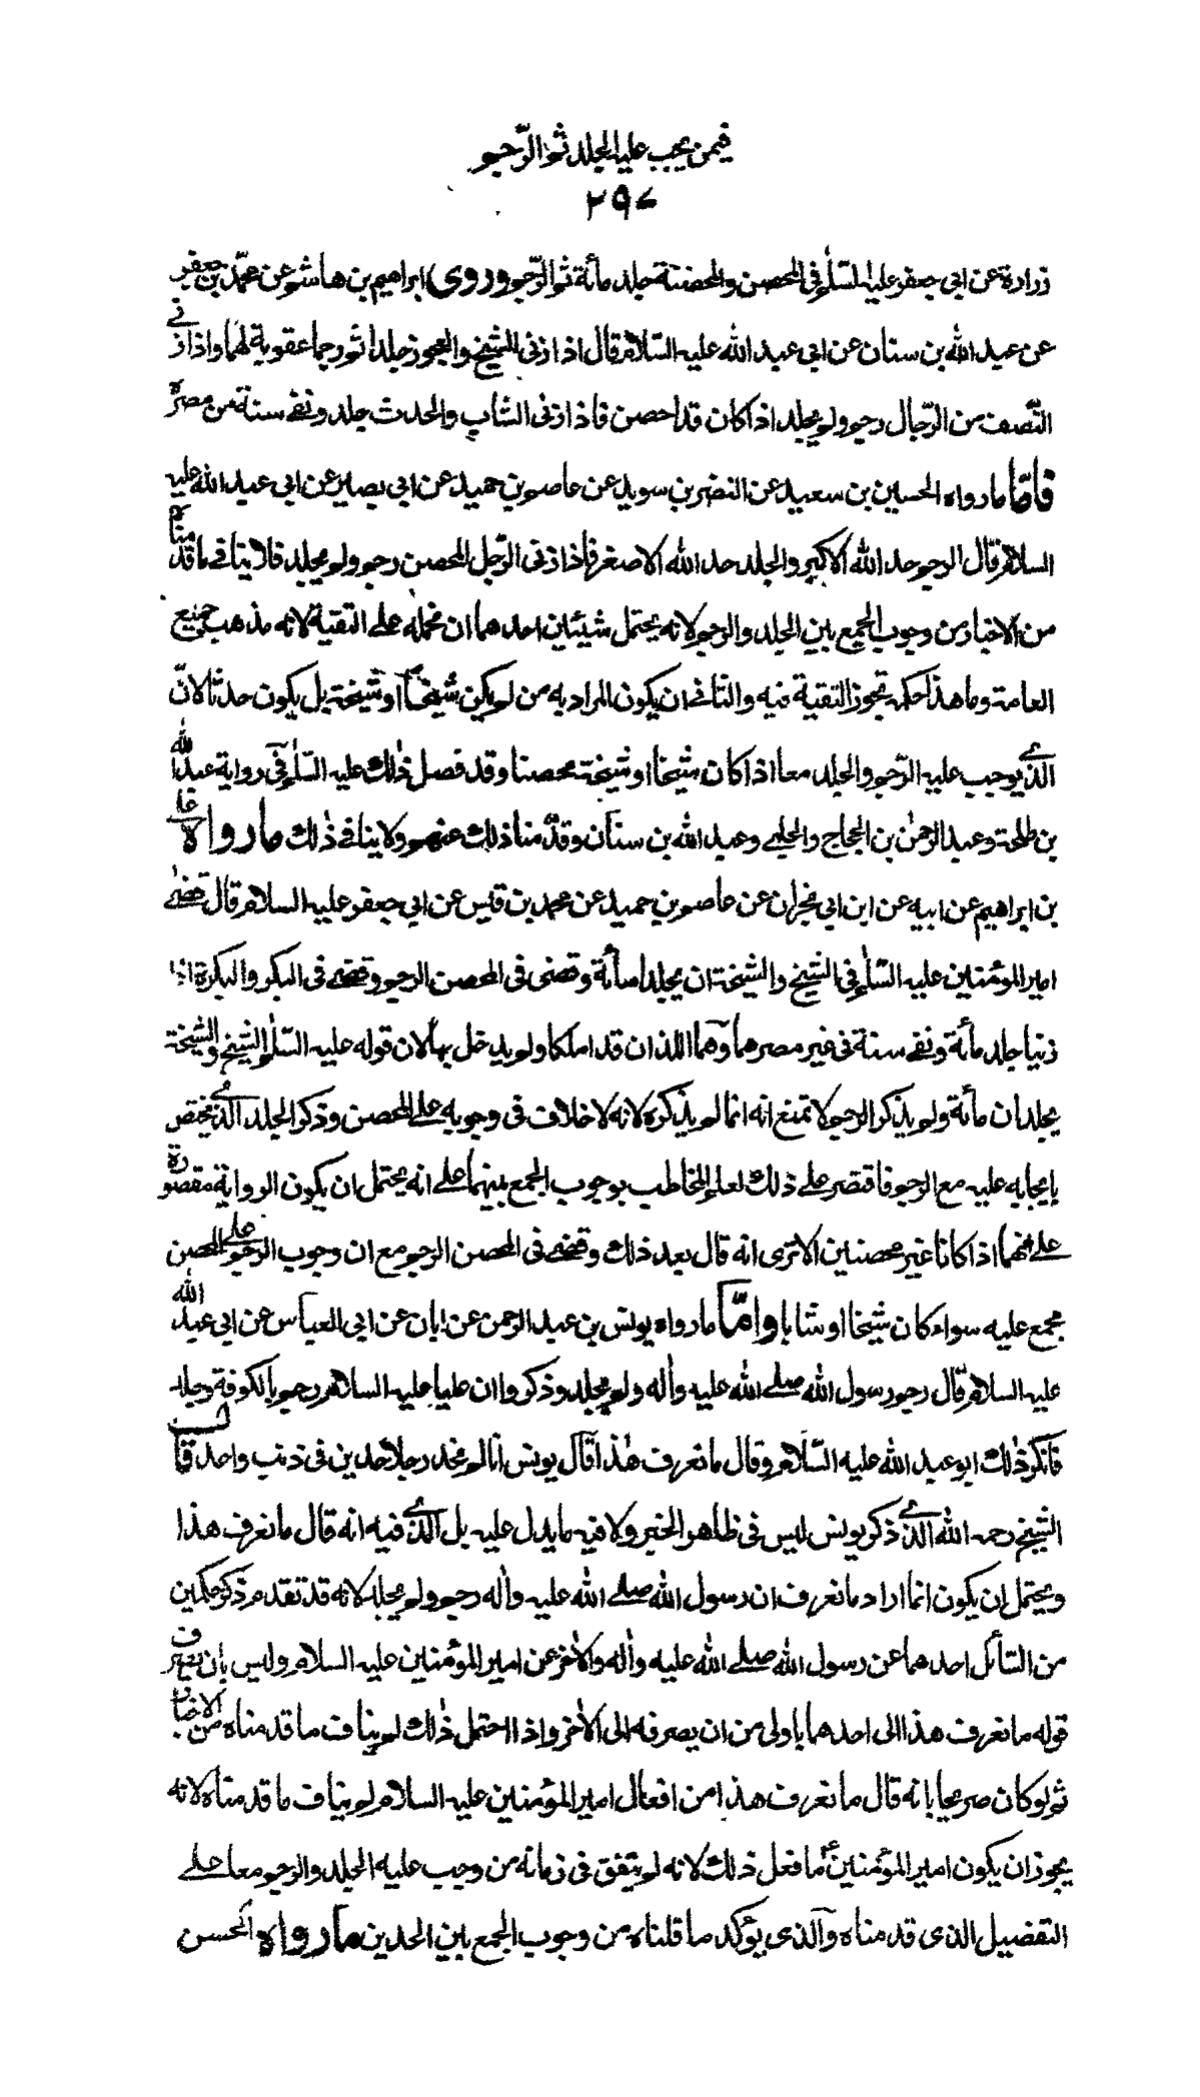 فيمن يجب عليه الجلد ثم الرّجم
٢٩٧
زرارة عن ابي جعفر عليه السّلم في المحصن والمحصنة جلد مائة ثم الرّجم وروى) ابراهيم بن هاشم عن محمّد بن جعفر
عن عبد الله بن سنان عن ابي عبد الله عليه السّلام قال اذا زنى الشيخ والعجوز جلدا ثم رجما عقوبة لهما واذا زنى
النّصف من الرّجال رجم ولم يجلد اذا كان قد احصن فاذا زنى الشاب والحدث جلد ونفى سنة من مصره
فامّا ما رواه الحسين بن سعيد عن النضر بن سويد عن عاصم بن حميد عن ابي بصير عن ابي عبد الله عليه
السلام قال الرجم حد الله الاكبر والجلد حد الله الاصغر فاذا زنى الرّجل المحصن رجم ولم يجلد فلا ينافي ما قدّمناه
من الاخبار من وجوب الجمع بين الجلد والرجم لانه يحتمل شيئين احدهما ان نحمله على التقية لانه مذهب جميع
العامة وما هذا حكمه تجوز التقية فيه والثاني ان يكون المراد به من لم يكن شيخاً او شيخة بل يكون حدثا لانّ
الذي يوجب عليه الرّجم والجلد معا اذا كان شيخا او شيخة محصنا وقد فصل ذٰلك عليه السّلم في رواية عبد الله
بن طلحة وعبد الرحمٰن بن الحجاج والحلبي وعبد الله بن سنان وقدّمنا ذلك عنهم ولا ينافي ذٰلك ما رواه علي
بن ابراهيم عن ابيه عن ابن ابي نجران عن عاصم بن حميد عن محمد بن قيس عن ابي جعفر عليه السلام قال قضى
امير المؤمنين عليه السّلم في الشيخ والشيخة ان يجلدا مائة وقضى في المحصن الرجم وقضى في البكر والبكرة اذا
زنيا جلد مائة ونفى سنة في غير مصرهما وهما اللذان قد املكا ولم يدخل بها لان قوله عليه السّلم الشيخ والشيخة
يجلدان مائة ولم يذكر الرجم لا تمنع انه انما لم يذكره لانه لا خلاف في وجوبه على المحصن وذكر الجلد الذي يختص
بايجابه عليه مع الرجم فاقتصر على ذلك لعلم المخاطب بوجوب الجمع بينهما على انه يحتمل ان يكون الرواية مقصورة
على انهما اذا كانا غير محصنين الا ترى انه قال بعد ذلك وقضى في المحصن الرجم مع ان وجوب الرجم على المحصن
مجمع عليه سواء كان شيخا او شابا وامّا ما رواه يونس بن عبد الرحمن عن ابان عن ابي العباس عن ابي عبد الله
عليه السلام قال رجم رسول الله صلى الله عليه وآله ولم يجلد وذكروا ان عليا عليه السلام رجم بالكوفة وجلد
فانكر ذٰلك ابو عبد الله عليه السّلام وقال ما نعرف هٰذا قال يونس انا لم نحد رجلا حدين في ذنب واحد قال
الشيخ رحمه الله الذي ذكر يونس ليس في ظاهر الخبر ولا فيه ما يدل عليه بل الذي فيه انه قال ما نعرف هذا
ويحتمل ان يكون انما اراد ما نعرف ان رسول الله صلى الله عليه وآله رجم ولم يجلد لانه قد تقدم ذكر حكمين
من السّائل احدهما عن رسول الله صلى الله عليه وآله والآخر عن امير المؤمنين عليه السلام وليس بان نصرف
قوله ما نعرف هذا الى احدهما باولى من ان يصرفه الى الآخر واذا احتمل ذٰلك لم يناف ما قدمناه من الاخبار
ثم لو كان صريحا بانه قال ما نعرف هذا من افعال امير المؤمنين عليه السلام لم يناف ما قدمناه لانه
يجوز ان يكون امير المؤمنينؑ ما فعل ذلك لانه لم يتفق في زمانه من وجب عليه الجلد والرجم معا على
التفصيل الذي قدمناه والذي يؤكد ما قلناه من وجوب الجمع بين الحدين ما رواه الحسن